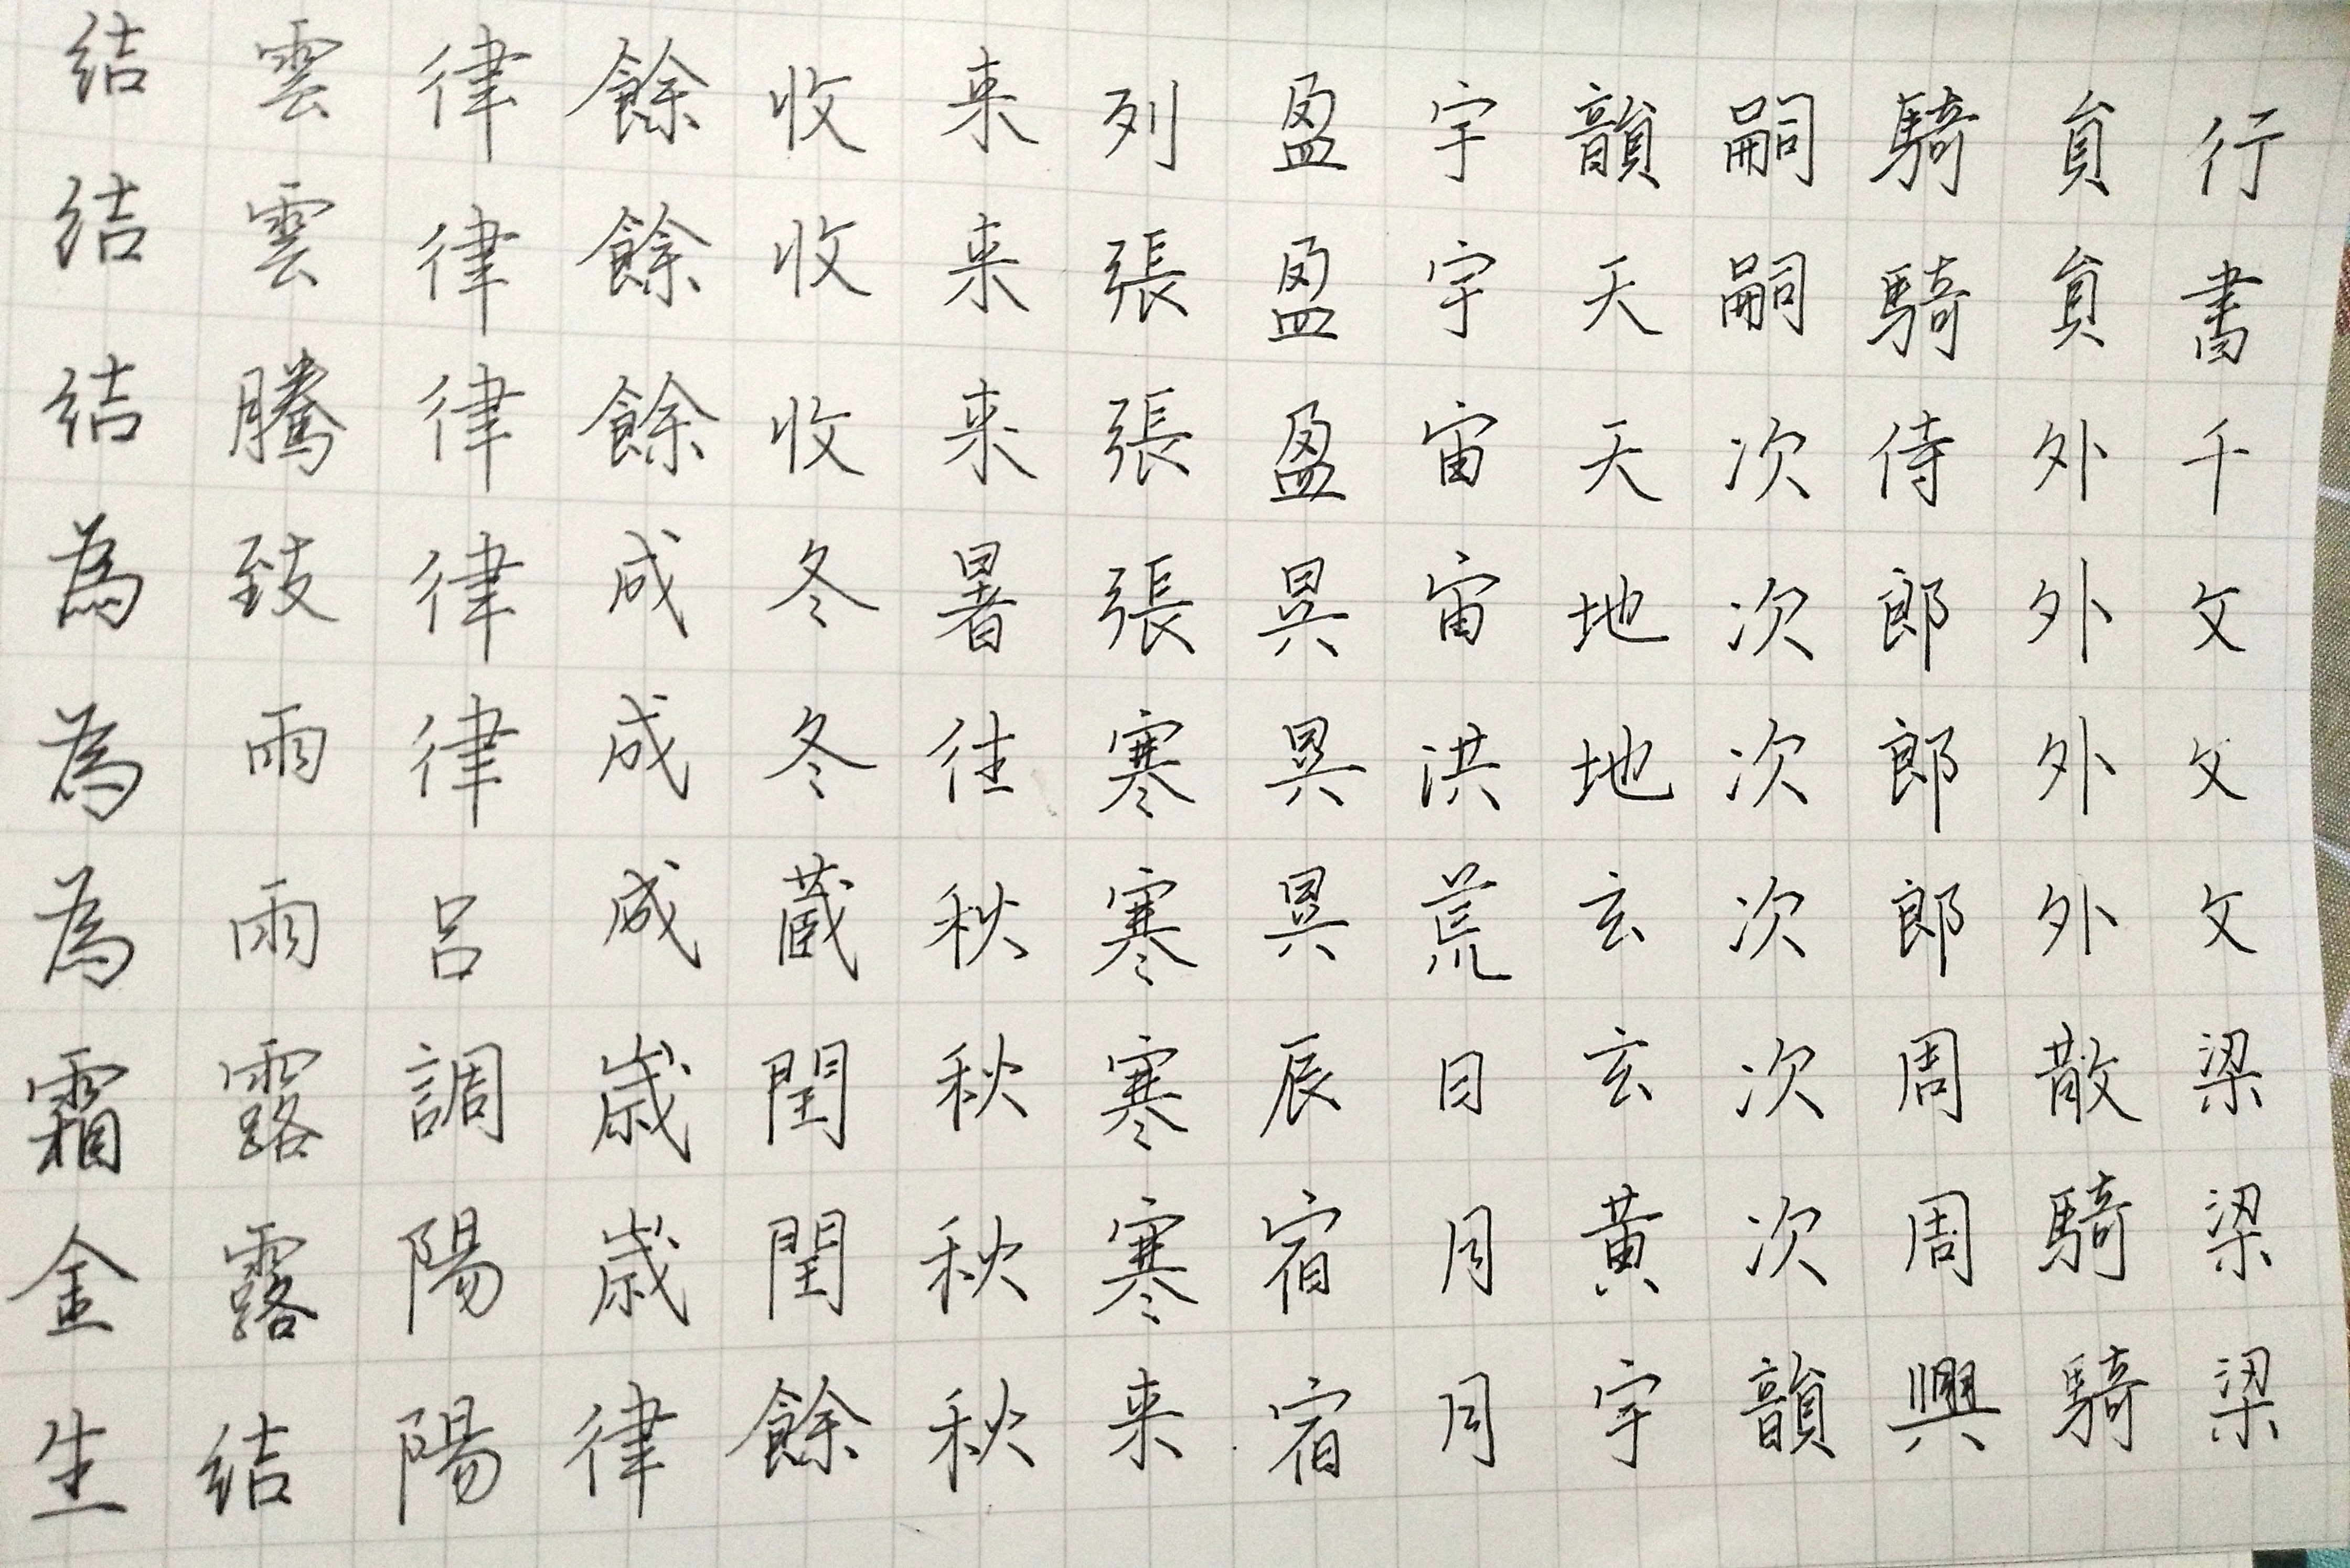 行書千文文文梁梁梁
員員外外外外散騎騎
騎騎侍郎郎郎周周興
嗣嗣次次次次次次韻
韻天天地地玄玄黃宇
宇宇宙宙洪荒日月月
盈盈盈昃昃昃辰宿宿
列張張張寒寒寒寒来
来来来暑往秋秋秋秋
收收收冬冬蔵閏閏餘
餘餘餘成成成歲歲律
律律律律律呂調陽陽
雲雲騰致雨雨露露結
結結結為為為霜金生